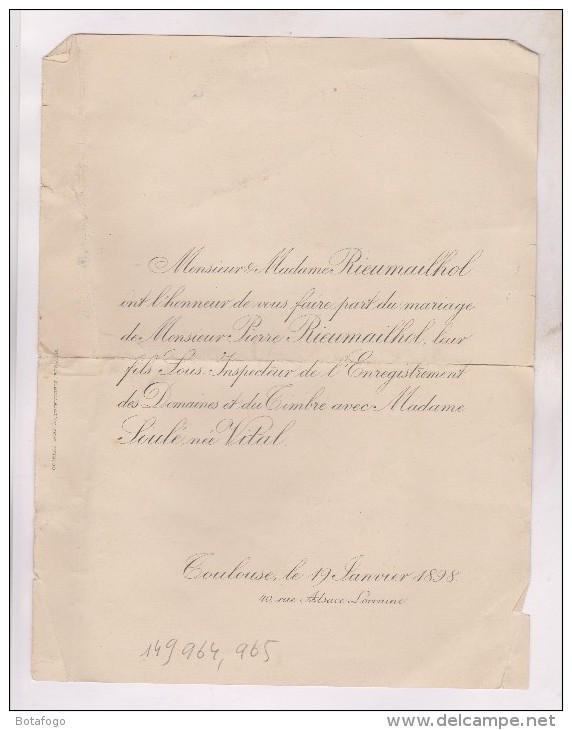 Monsieur & Madame Rieumailhol
ont l'honneur de vous faire part du mariage
de Monsieur Pierre Rieumailhol, leur
fils Sous-Inspecteur de l'Enregistrement
des Domaines et du Timbre avec Madame
Soulé, née Vital.
Toulouse, le 19 Janvier 1898.
40, rue Alsace-Lorraine
149 964, 965
Botafogo
www.delcampe.net